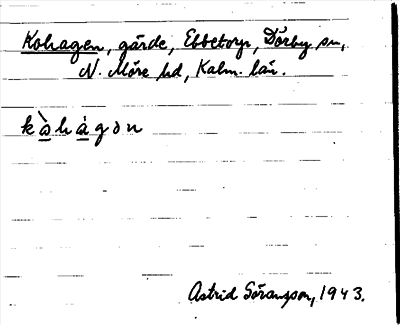 Kohagen, gärde, Ebbetorp, Dörby sn,
N. Möre hd, Kalm. län.
kàhágən
Astrid Göransson, 1943.